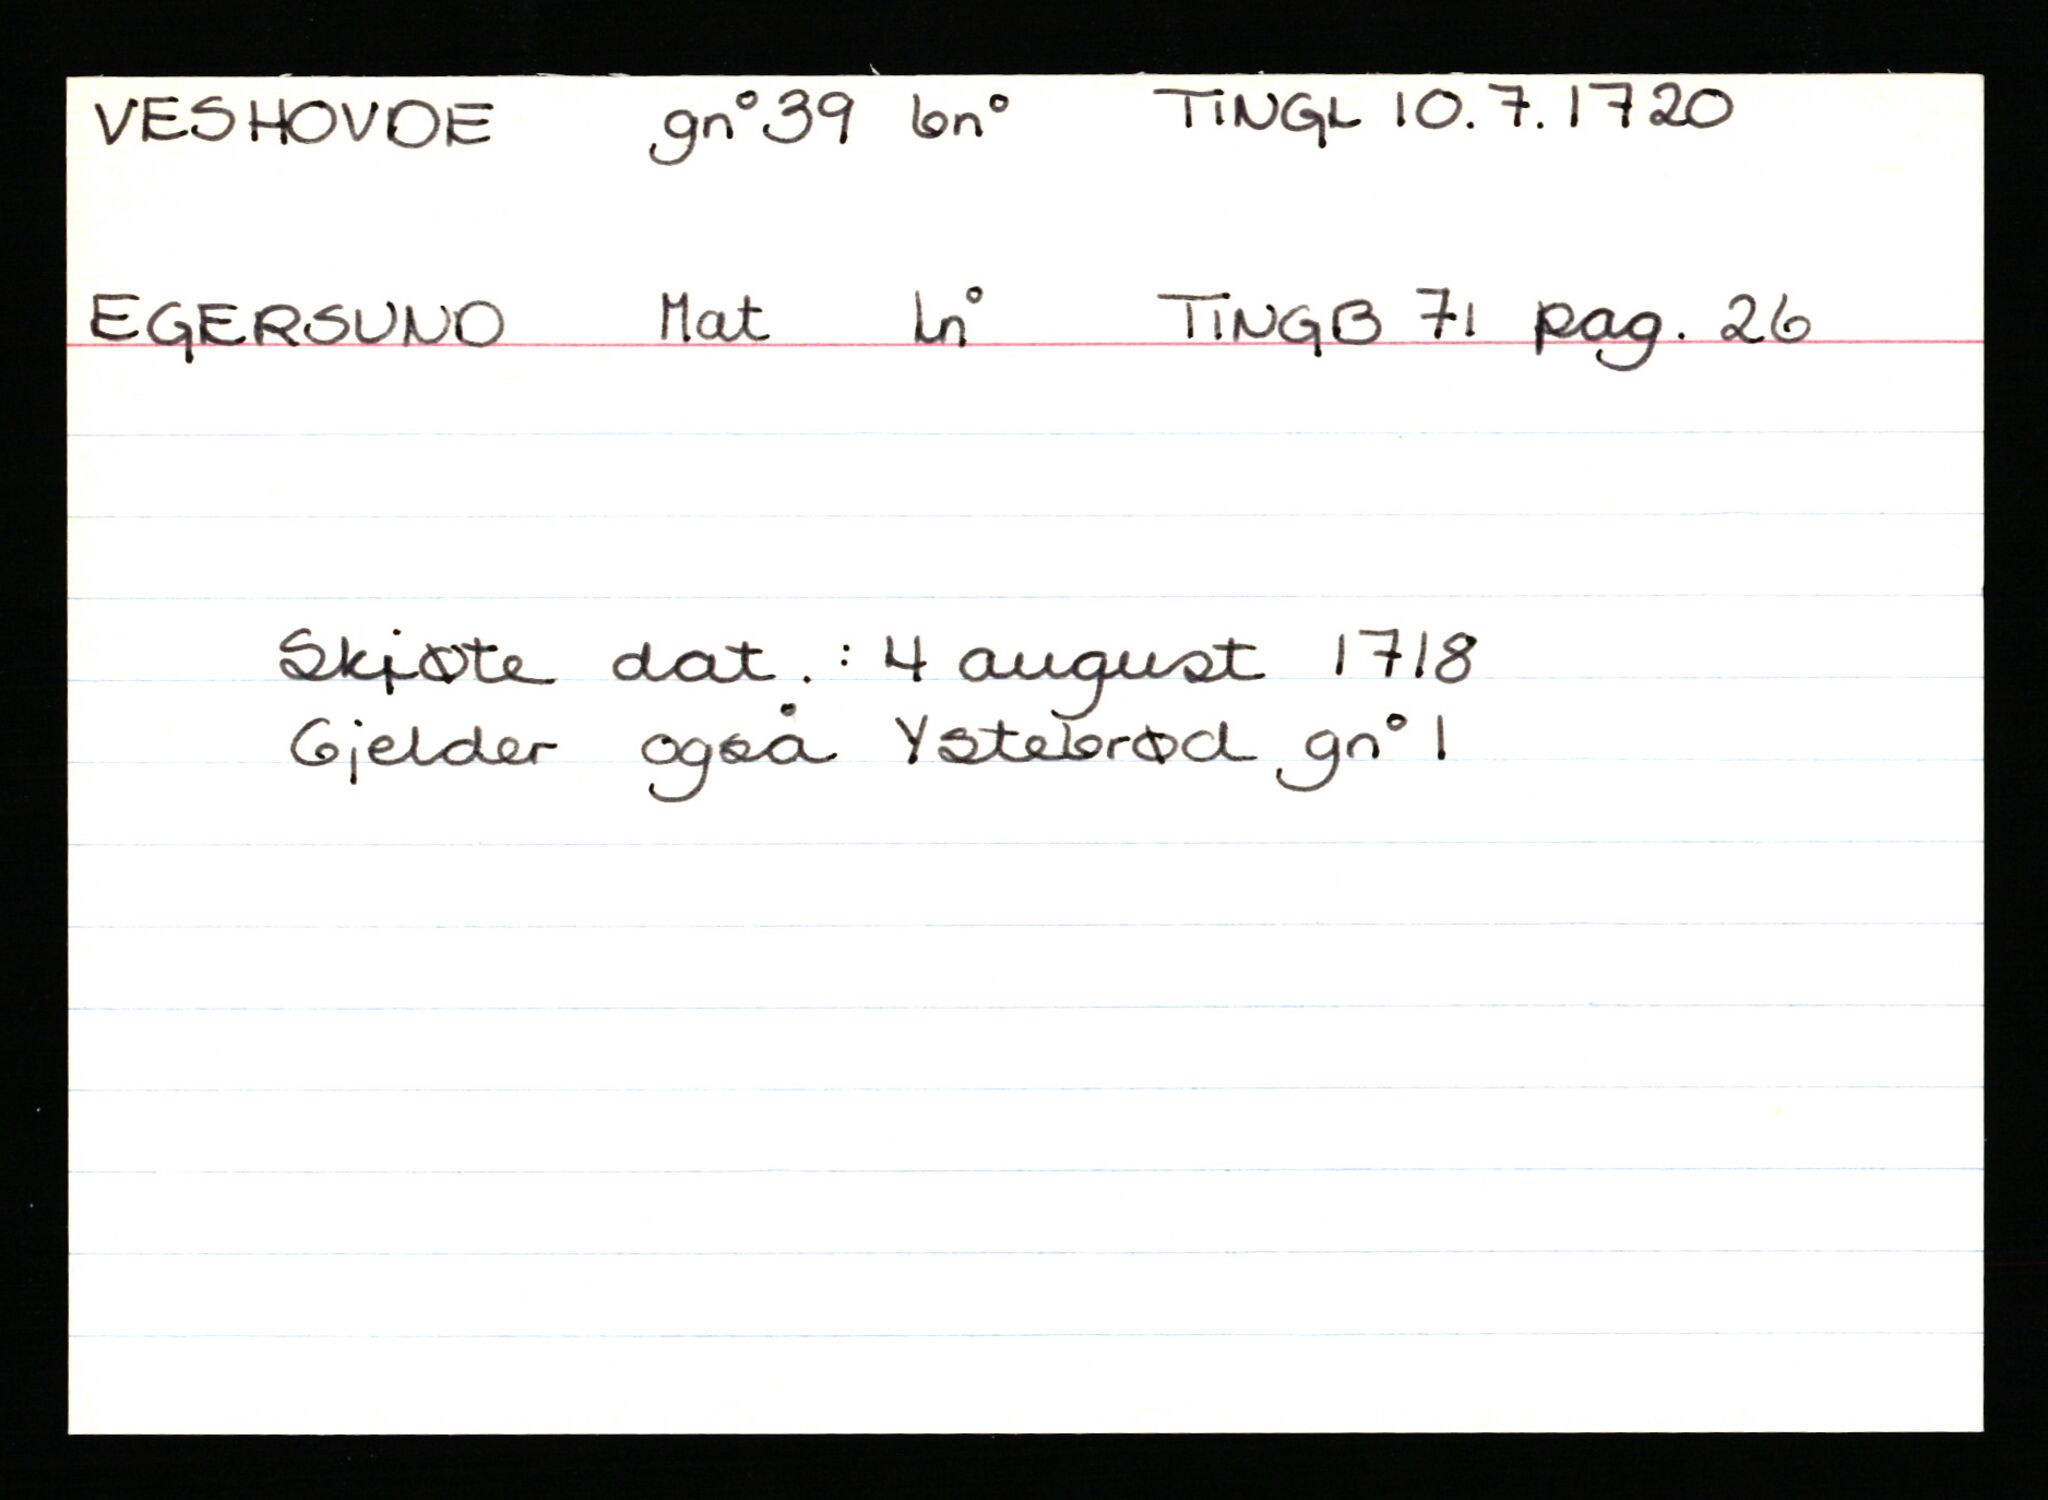 VESHOVDE gn° 39 bn° TINGL 10.7.1720
EGERSUND Mat Ln° TINGB 71 pag. 26
Skjøte dat. : 4 august 1718
Gjelder også Ystebrød gn° 1